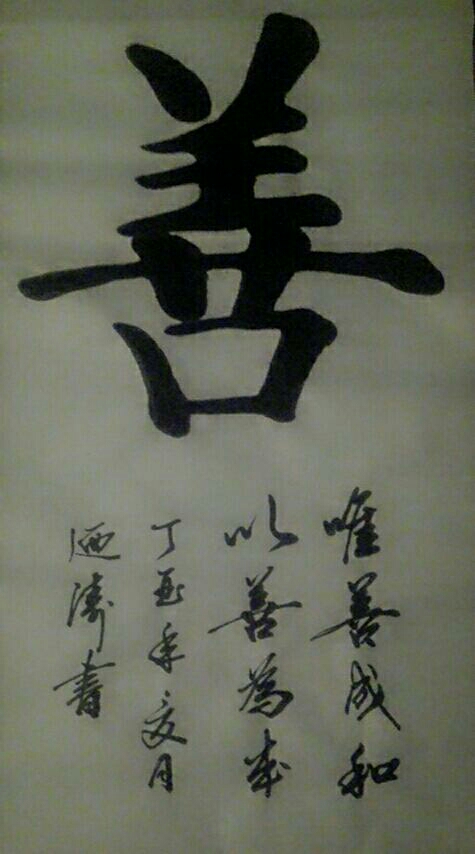 善
唯善成和
以善為
丁酉年夏月
迺涛書